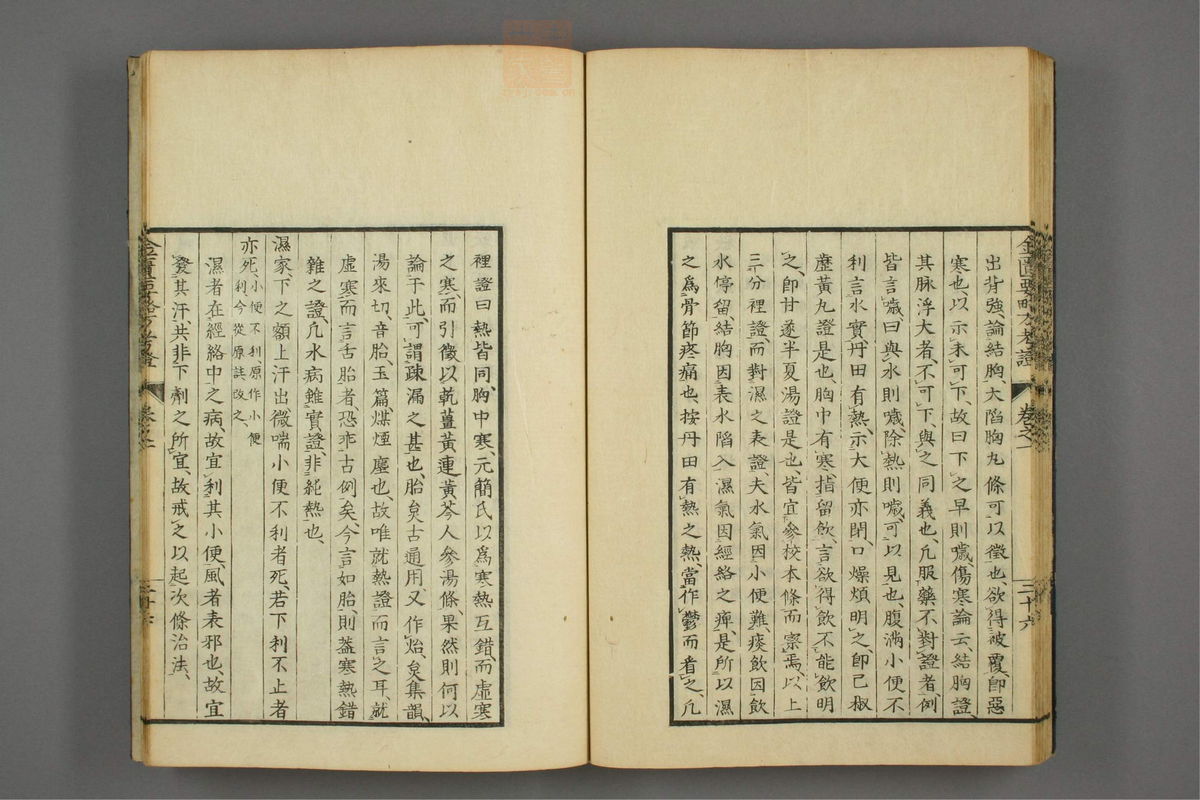 金匱要略方考證 卷之一 三十六
出背強、論結胸、大陷胸丸條可以徵也、欲得被覆、卽惡
寒也、以示未可下、故曰下之早則噦、傷寒論云、結胸證、
其脉浮大者、不可下、與之同義也、凡服藥不對證者、例
皆言噦、曰與水則噦、除熱則噦、可以見也、腹滿小便不
利、言水實、丹田有熱、示大便亦閉、口燥煩、明之、卽己椒
藶黃丸證是也、胸中有寒、指留飮、言欲得飮不能飮明
之、卽甘遂半夏湯證是也、皆宜參校本條而察焉、以上
三分裡證、而對濕之表證、夫水氣因小便難、痰飮因飮
水停留、結胸因表水陷入、濕氣因經絡之痺、是所以濕
之爲骨節疼痛也、按丹田有熱之熱、當作鬱而看之、凡
裡證曰熱皆同、胸中寒、元簡氏以爲寒熱互錯、而虛寒
之寒、而引徵以乾薑黃連黃芩人參湯條、果然則何以
論于此、可謂疎漏之甚也、胎炱古通用、又作炲、炱集韻、
湯來切、音胎、玉篇、煤煙塵也、故唯就熱證而言之耳、就
虛寒而言舌胎者、恐非古例矣、今言如胎、則蓋寒熱錯
雜之證、凡水病雖實證、非純熱也、
濕家、下之、額上汗出、微喘、小便不利者死、若下利不止者
亦死、小便不利、原作小便利、今從原註改之、
濕者在經絡中之病、故宜利其小便、風者表邪也、故宜
發其汗、共非下劑之所宜、故戒之以起次條治法、
金匱要略方考證 卷之一